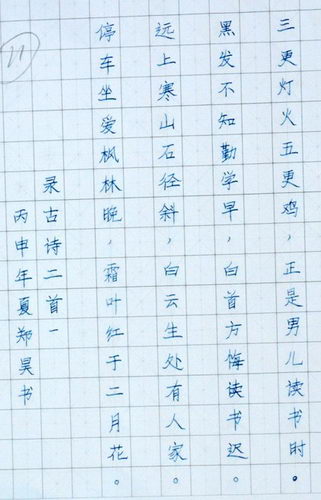 三更灯火五更鸡，正是男儿读书时。
黑发不知勤学早，白首方悔读书迟。
远上寒山石径斜，白云生处有人家
停车坐爱枫林晚，霜叶红于二月花。
录古诗二首一
丙申年夏郑昊书
11